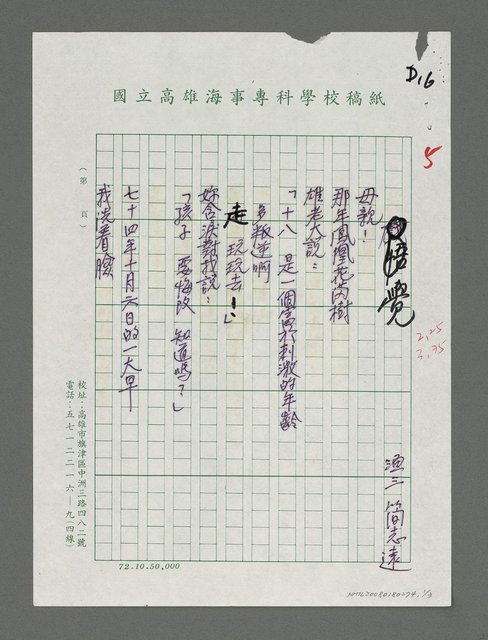 D16
國立高雄海事專科學校稿紙
5
悟覺
2,25
3,75
漁三 簡志遠
母親！
那年鳳凰花滿樹
雄老大說：
「十八 是一個富於刺激的年齡
多叛逆啊
走 玩玩去！」
妳含淚對我說：
「孩子 要悔改 知道嗎？」
七十四年十月六日的一大早
我洗着臉
（第 頁）
校址：高雄市旗津區中洲三路四八二號
電話：五七一二二一六－九(四線)
72.10.50,000
NMTL20080180274, 1/3